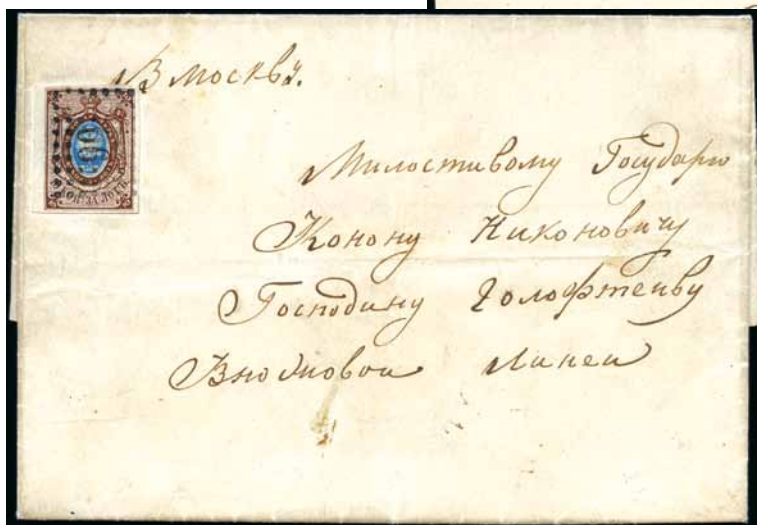 В Москвѣ.
Милостивому Государю
Конону Никоновичу
Господину Голофтеиву
Линеи